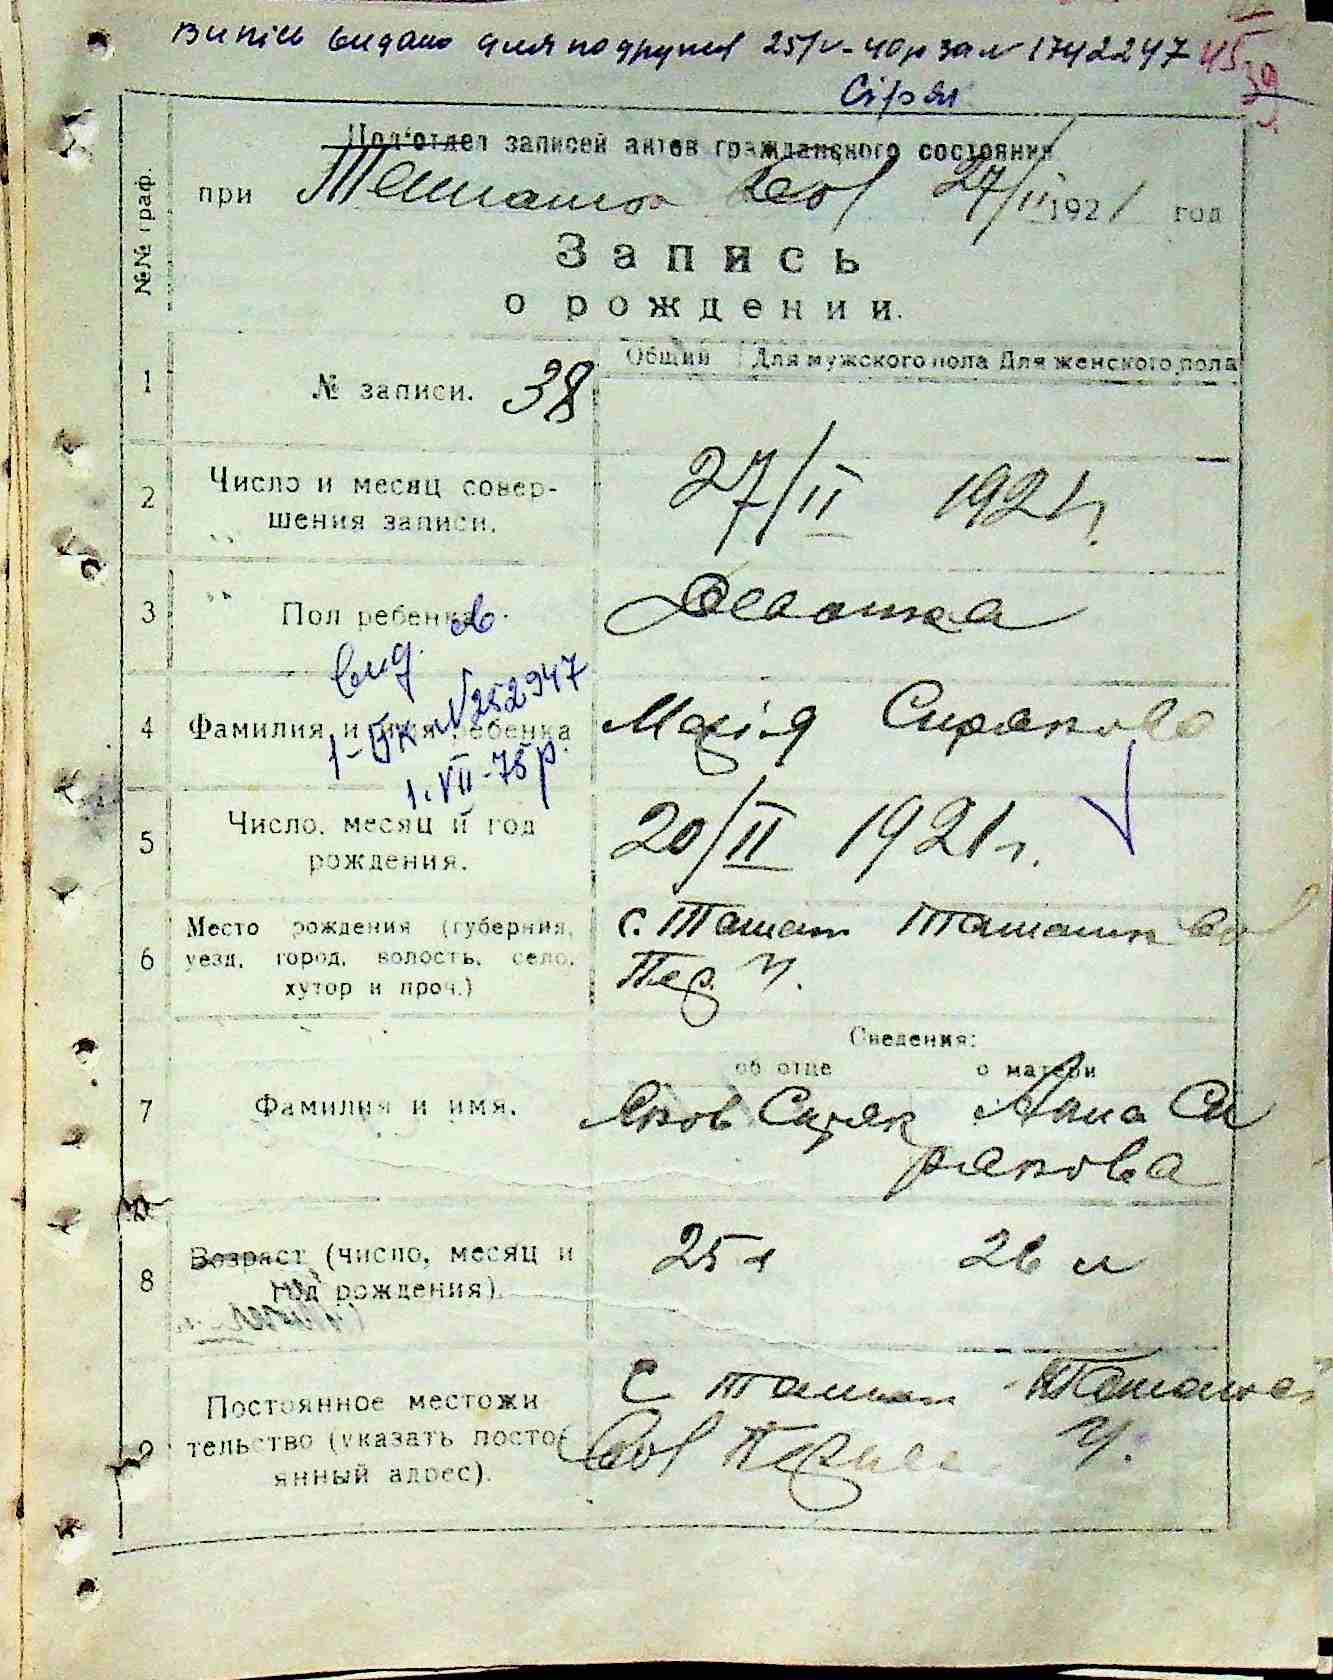 Випись видано для подружжя 25/V-40р за № 1742247
45
39
Сіряк
Под'отдел записей актов гражданского состояния
при Ташаньск Вол 27/II 1921 год
№№ граф.
Запись
о рождении.
Общий Для мужского пола Для женского пола
1 № записи. 38
2 Число и месяц совер-
шения записи. 27/II 1921 г.
3 Пол ребенка Девочка
вид.
4 Фамилия и имя ребенка Марія Сирякова
1-БК № 252947
1.VII-75р.
5 Число, месяц и год
рождения. 20/II 1921 г.
6 Место рождения (губерния,
уезд, город, волость, село,
хутор и проч.)
с. Ташань Ташанск Вол
Пер. У.
Сведения:
об отце о матери
7 Фамилия и имя. Яков Сиряк Анна Си
рякова
8 Возраст (число, месяц и
год рождения). 25 л 26 л
9 Постоянное местожи
тельство (указать посто-
янный адрес).
С Ташань Ташанск
Вол У.